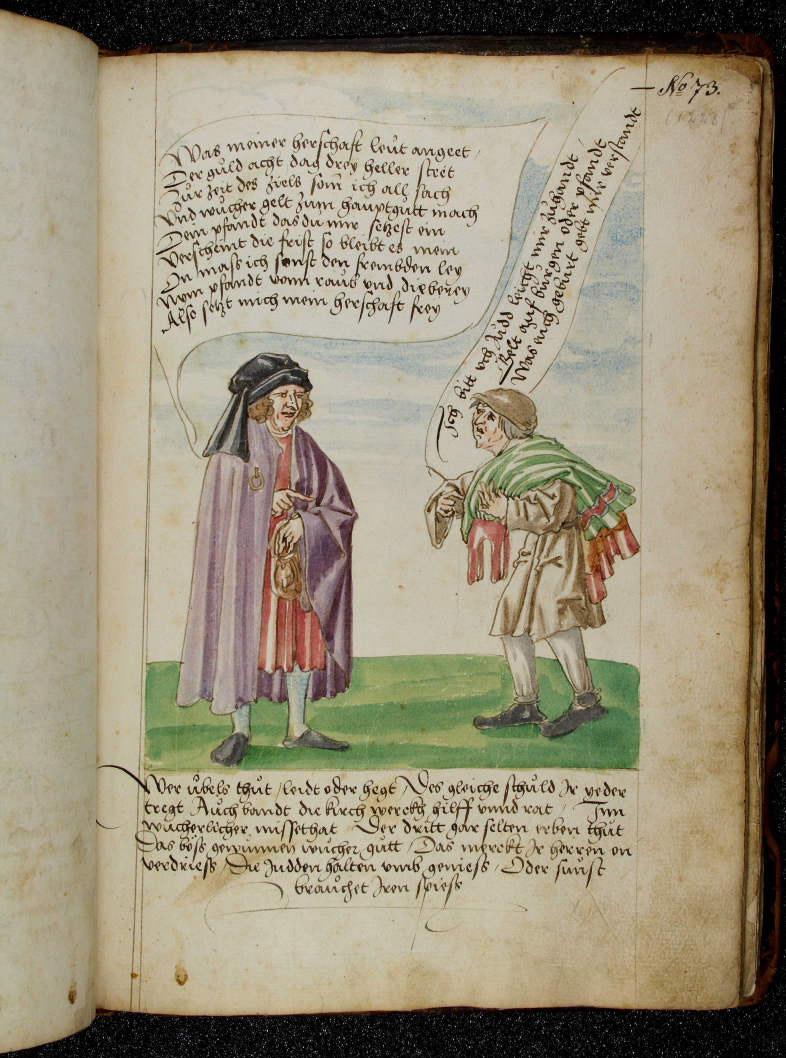 No 73.
(122
Was meiner herschaft leut angeet /
Der guld acht dag drey heller stet
Zur zeit des ziels som ich alz sach
Vnd wucher gelt zum hauptgutt mach
Dem pfandt das du mir setzest ein
Verscheint die frist so bleibt es mein
On mass ich sonst den frembden ley
Vom pfandt vom raub vnd dieberey
Also setzt mich mein herschaft frey
Ich bitt uch Judd leicht mir zuhandt /
Gelt auf burgen oder pfandt /
Was euch geburt gebt mir verstandt
Wer ubels thut / leidt oder hegt / Des gleiche schuld Ir yeder
tregt Auch bandt die kirch werckh hilff vnnd rat / Inn
wucherlicher missethat Der dritt gar selten erben thut
Das böss gewunnen wucher gutt / Das merckt Ir herren on
verdriess / Die Judden halten vmb geniess / Oder sunst
brauchet Iren spiess